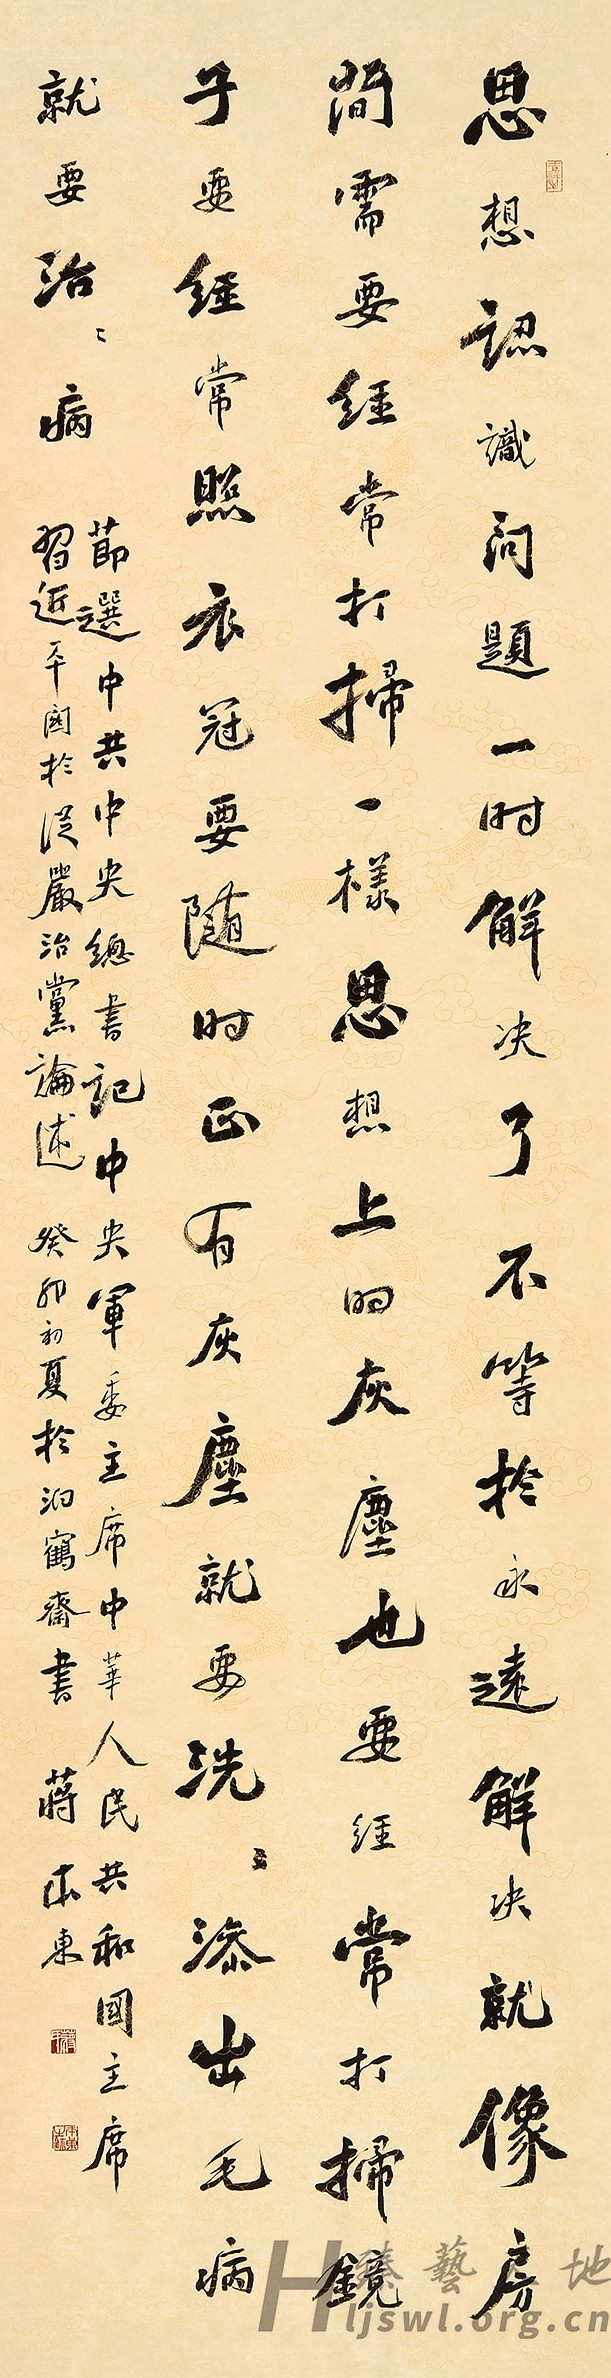 思想認識问题一时解决了不等於永遠解决就像房
間需要经常打掃一樣思想上的灰塵也要经常打掃鏡
子要经常照衣冠要随时正有灰塵就要洗〻添出毛病
就要治〻病
節選中共中央總書記中央軍委主席中華人民共和國主席
習近平関於从嚴治黨論述 癸卯初夏於泊鶴齋書 蔣本東
臻藝 地
Hljswl.org.cn